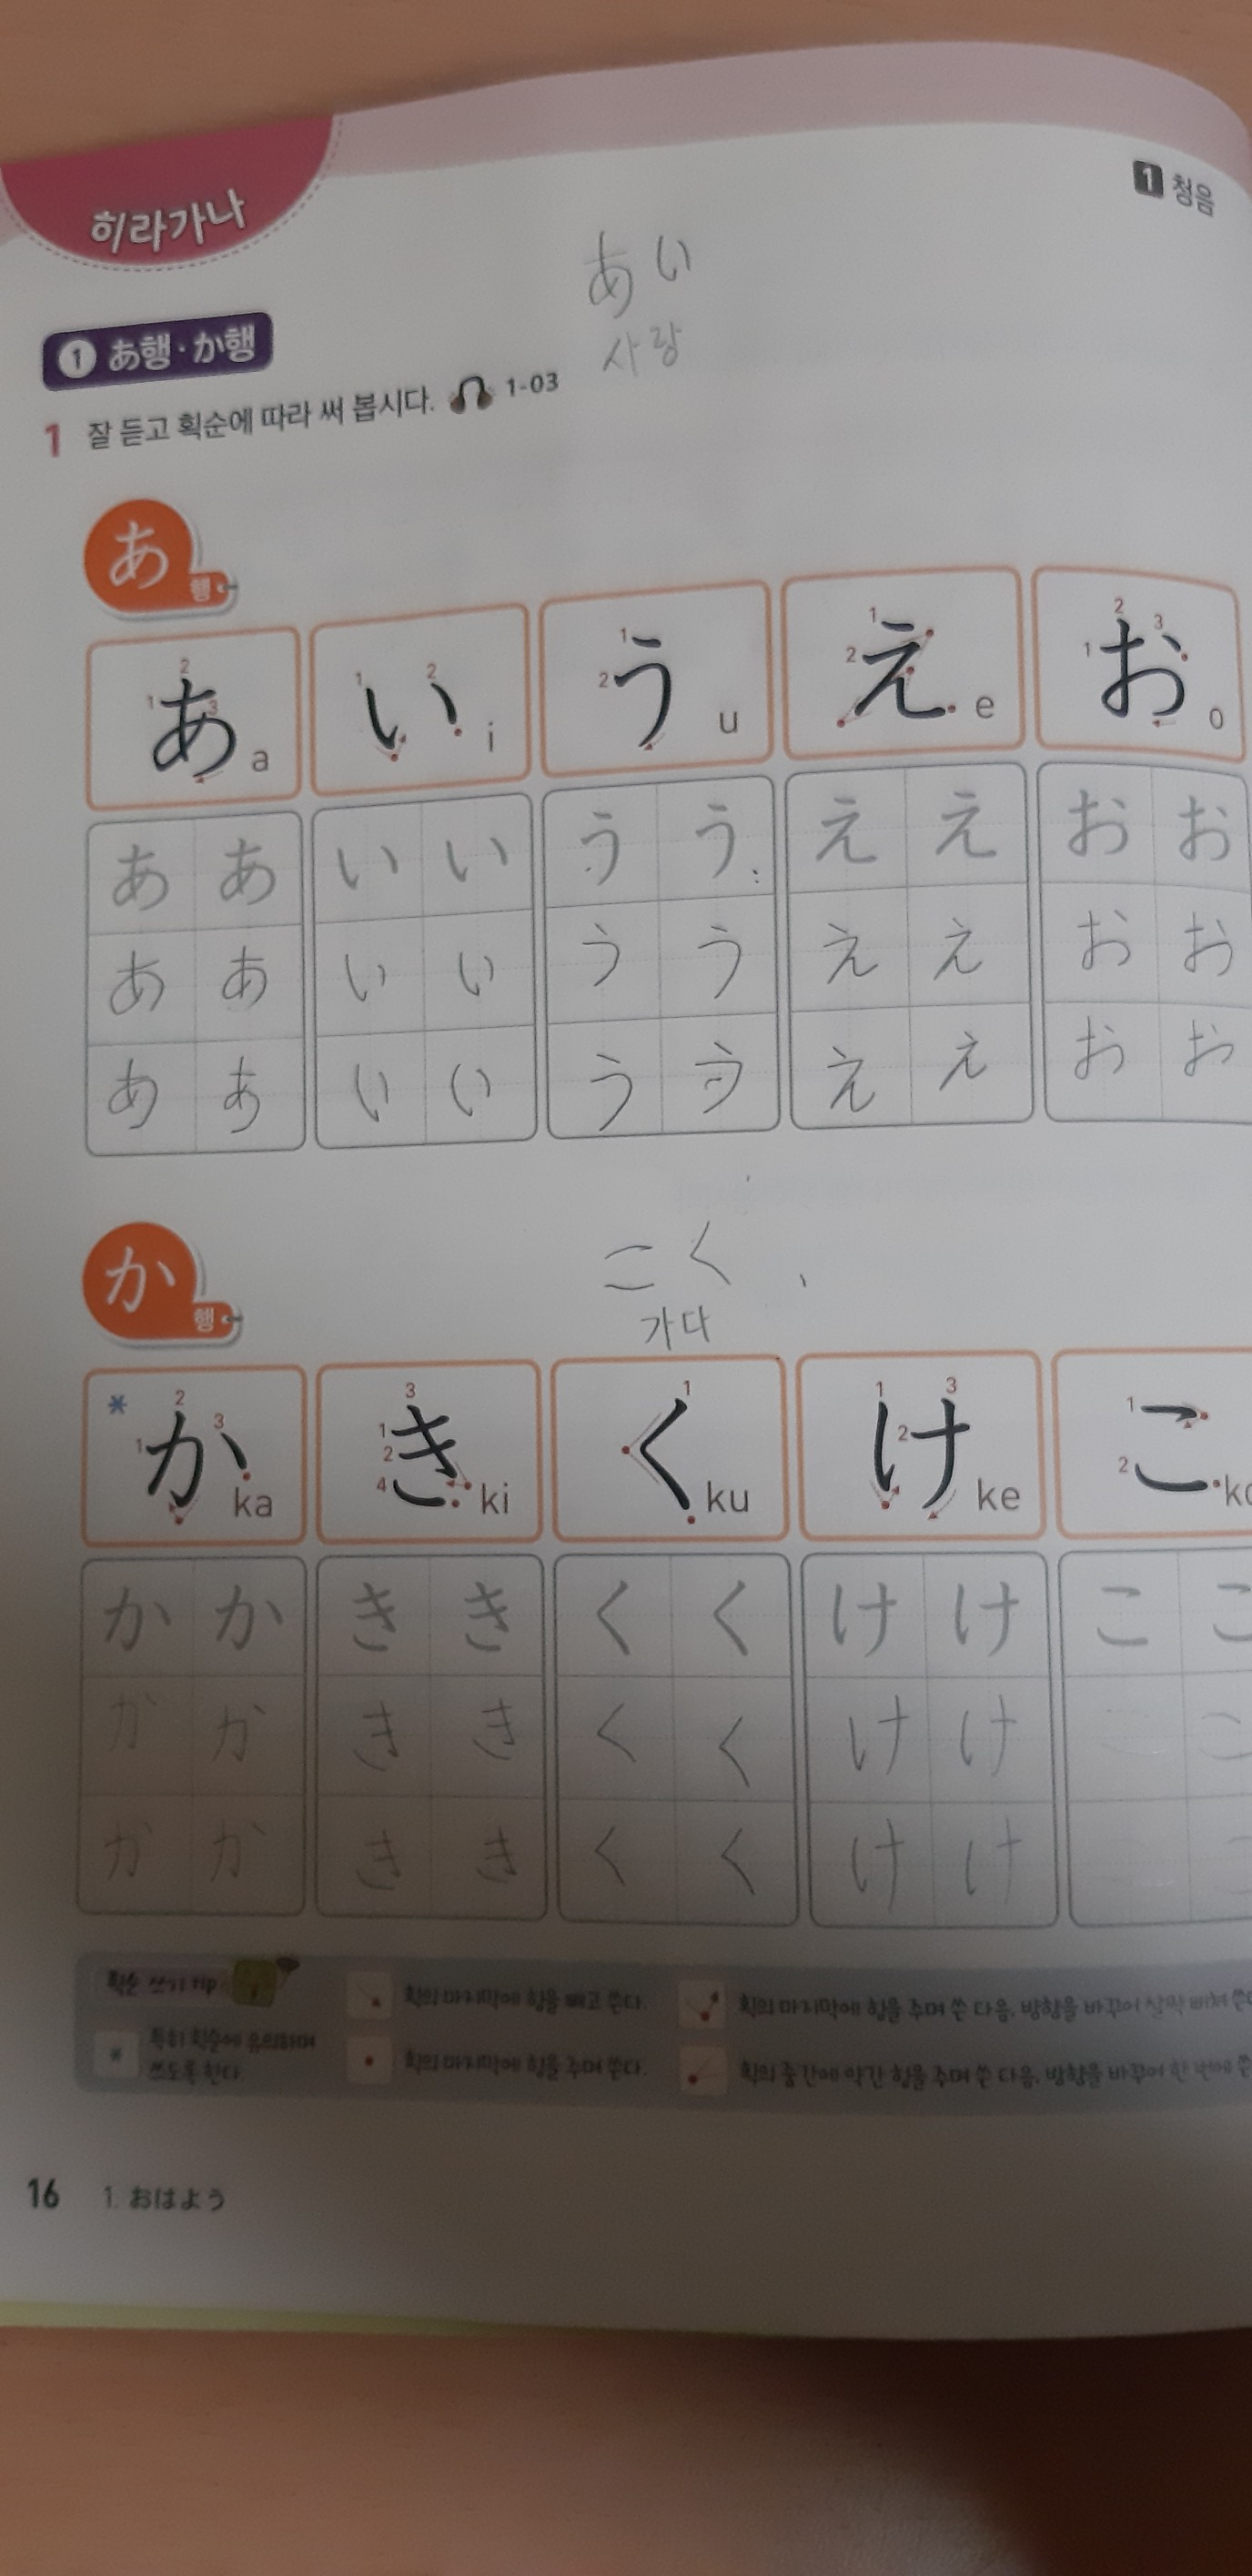 히라가나
1 청음
あい
사랑
1 あ행·か행
1 잘 듣고 획순에 따라 써 봅시다. 1-03
あ행
1 2 3 あ a 1 2 い i 1 2 う u 1 2 え e 1 2 3 お o
あ あ い い う う え え お お
あ あ い い う う え え お お
あ あ い い う う え え お お
こく
가다
か행
* 1 2 3 か ka 1 2 3 4 き ki 1 く ku 1 2 3 け ke 1 2 こ
か か き き く く け け こ こ
か か き き く く け け こ
か か き き く く け け
획순 쓰기 tip
획의 마지막에 힘을 빼고 쓴다. 획의 마지막에 힘을 주며 쓴 다음, 방향을 바꾸어 살짝 삐쳐
* 특히 획순에 유의하며
쓰도록 한다.
획의 마지막에 힘을 주며 쓴다. 획의 중간에 약간 힘을 주며 쓴 다음, 방향을 바꾸어 한 번에
16 1. おはよう